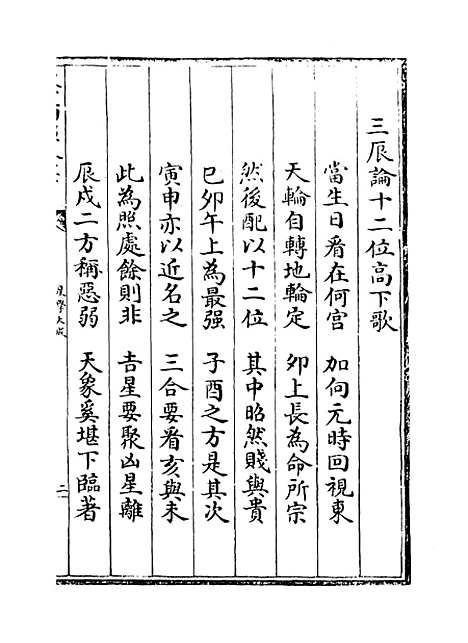 三辰論十二位高下歌
當生日看在何宮　加向元時回視東
天輪自轉地輪定　卯上長為命所宗
然後配以十二位　其中昭然賤與貴
巳卯午上為最强　子酉之方是其次
寅申亦以近名之　三合要看亥與未
此為照處餘則非　吉星要聚凶星離
辰戌二方稱惡弱　天象奚堪下臨著
星學大成
二